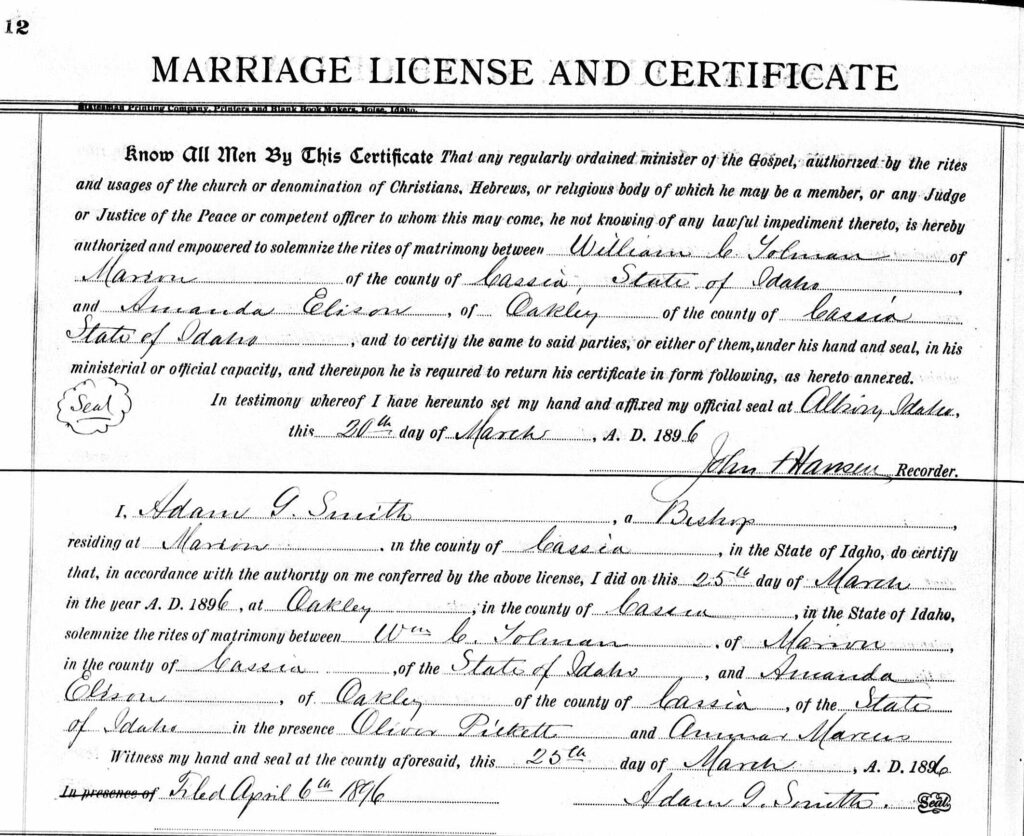 12
MARRIAGE LICENSE AND CERTIFICATE
Statesman Printing Company, Printers and Blank Book Makers, Boise, Idaho.
Know All Men By This Certificate That any regularly ordained minister of the Gospel, authorized by the rites
and usages of the church or denomination of Christians, Hebrews, or religious body of which he may be a member, or any Judge
or Justice of the Peace or competent officer to whom this may come, he not knowing of any lawful impediment thereto, is hereby
authorized and empowered to solemnize the rites of matrimony between William C. Tolman of
Marion of the county of Cassia, State of Idaho,
and Amanda Elison, of Oakley of the county of Cassia
State of Idaho, and to certify the same to said parties, or either of them, under his hand and seal, in his
ministerial or official capacity, and thereupon he is required to return his certificate in form following, as hereto annexed.
Seal
In testimony whereof I have hereunto set my hand and affixed my official seal at Albion, Idaho,
this 20th day of March, A. D. 1896
John Hansen Recorder.
I, Adam G. Smith, a Bishop,
residing at Marion, in the county of Cassia, in the State of Idaho, do certify
that, in accordance with the authority on me conferred by the above license, I did on this 25th day of March
in the year A. D. 1896, at Oakley, in the county of Cassia, in the State of Idaho,
solemnize the rites of matrimony between Wm C. Tolman, of Marion,
in the county of Cassia, of the State of Idaho, and Amanda
Elison, of Oakley of the county of Cassia, of the State
of Idaho in the presence Oliver Pickett and Marcus
Witness my hand and seal at the county aforesaid, this 25th day of March, A. D. 1896
In presence of Filed April 6th 1896 Adam G. Smith. Seal